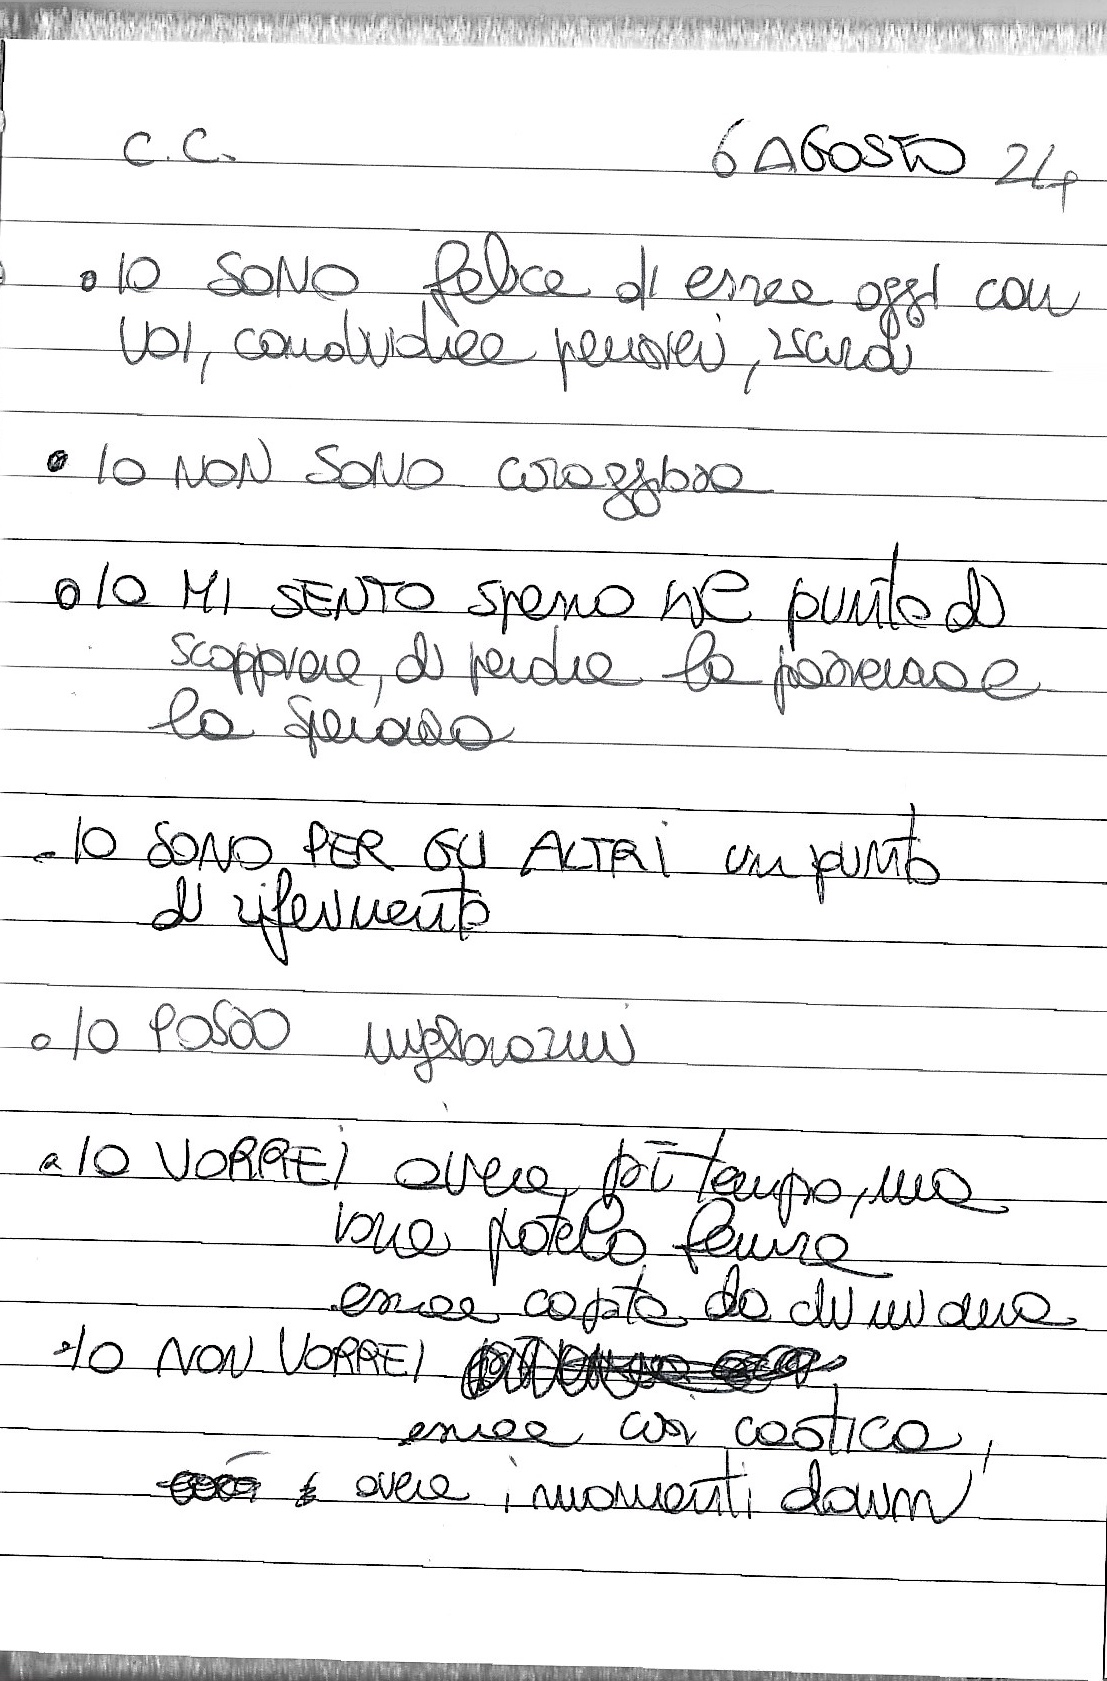 C.C. 6 AGOSTO 24
• IO SONO felice di essere oggi con
voi, condividere pensieri,
• IO NON SONO coraggiosa
• IO MI SENTO spesso nel punto di
scoppiare, di perdere la pazienza e
la speranza
- IO SONO PER GLI ALTRI un punto
di riferimento
• IO POSSO migliorarmi
• IO VORREI avere più tempo, ma
poterlo
essere capita da chi mi ama
• IO NON VORREI
essere così caotica,
avere i momenti down